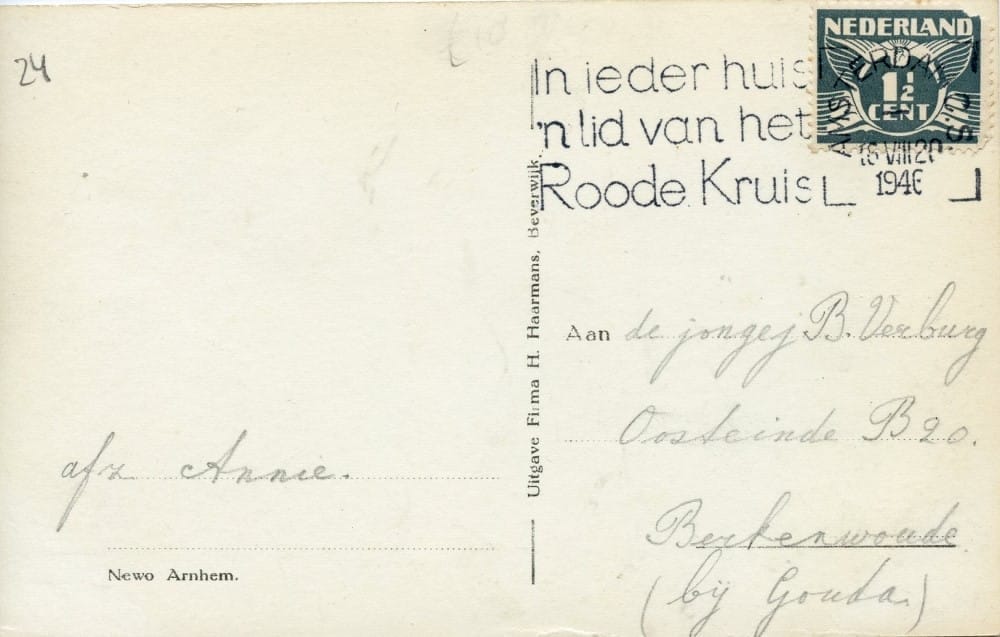 24
In ieder huis
'n lid van het
Roode Kruis
NEDERLAND
1½
CENT
AMSTERDAM C.S.
16 VIII 20
1946
Uitgave Firma H. Haarmans, Beverwijk.
Aan de jongej B. Verburg
Oosteinde B 20.
Berkenwoude
(bij Gouda)
afz Annie.
Newo Arnhem.